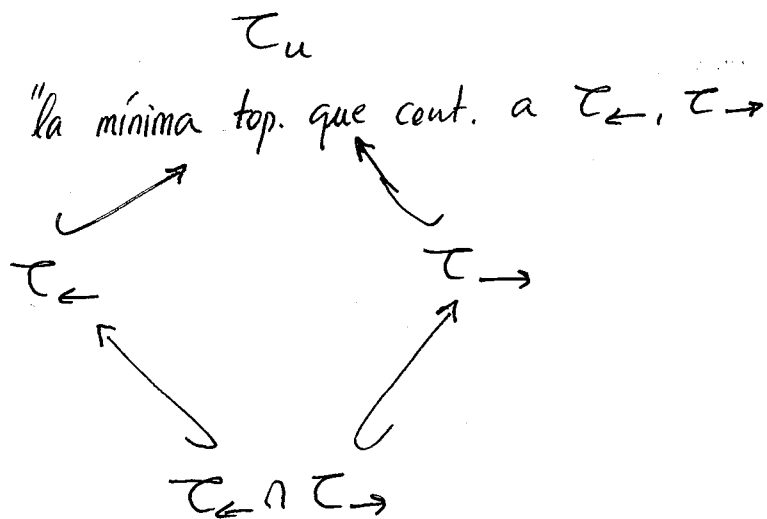 τu
"la mínima top. que cont. a τ←, τ→
τ← τ→
τ← ∩ τ→